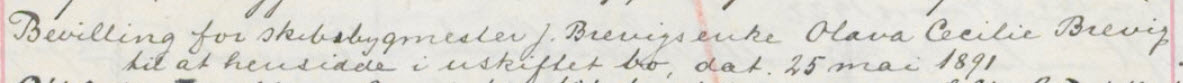 Bevilling for skibsbygmester J. Brevigs enke Olava Cecilie Brevig
til at hensidde i uskiftet bo, dat. 25 mai 1891